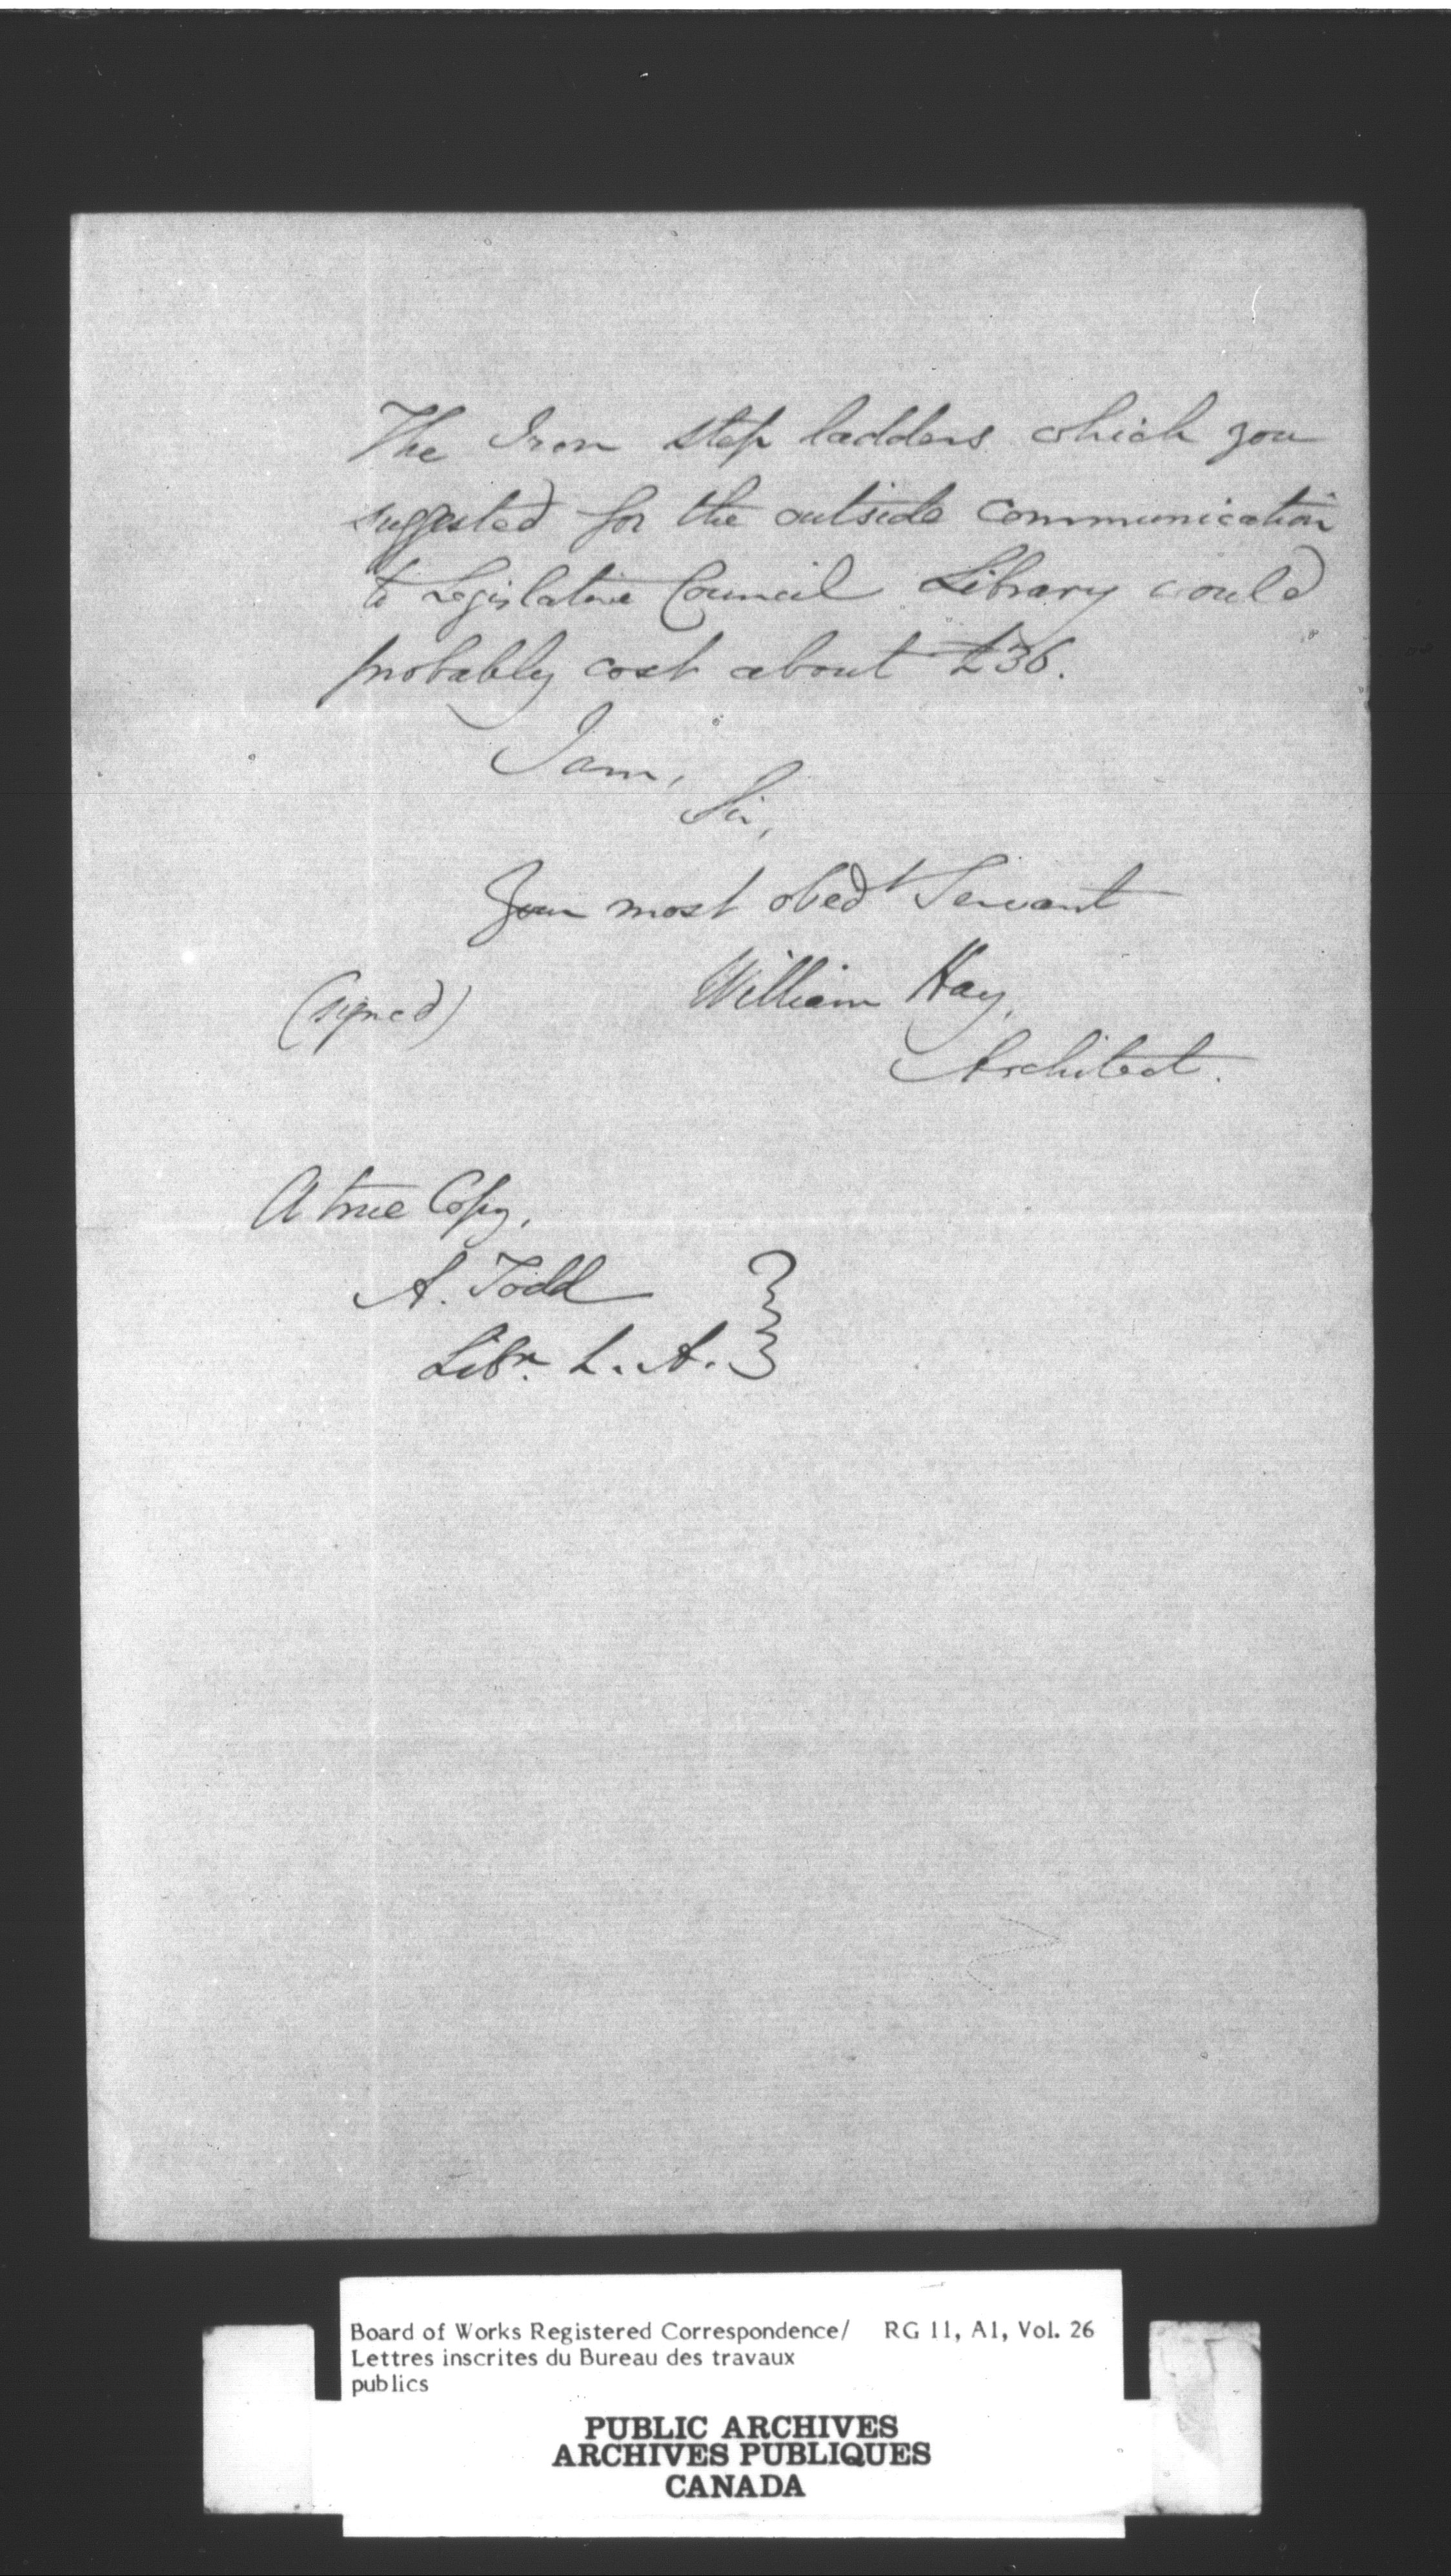 The Iron step ladders which you
suggested for the outside communication
to Legislative Council Library would
probably cost about £36.
I am,
Sir,
Your most obedt Servant
(signed) William Hay,
Architect.
A true Copy,
A. Todd
Libn. L. A.
Board of Works Registered Correspondence/ RG 11, A1, Vol. 26
Lettres inscrites du Bureau des travaux
publics
PUBLIC ARCHIVES
ARCHIVES PUBLIQUES
CANADA